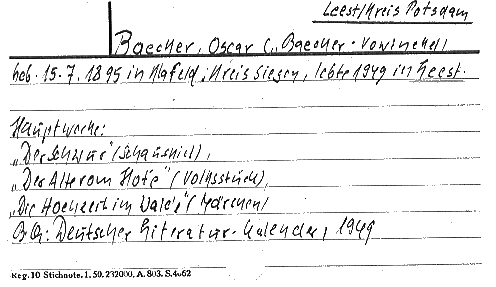 Leest/Kreis Potsdam
Baecker, Oscar (, Baecker-Vowinckel)
geb. 15.7.1895 in Alafeld, Kreis Siegen, lebte 1949 in Leest.
Hauptwerke:
„Der Schwur" (Schauspiel),
„Der Alte vom Hofe" (Volksstück),
„Die Hochzeit im Walde" (Märchen)
Qu: Deutscher Literatur-Kalender, 1949
Reg. 10 Stichnote. 1. 50. 232000. A. 803. S. 4062